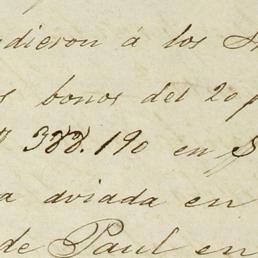 dieron á los
bonos del 20 p
388.190 en $
a aviada en
de Paul en